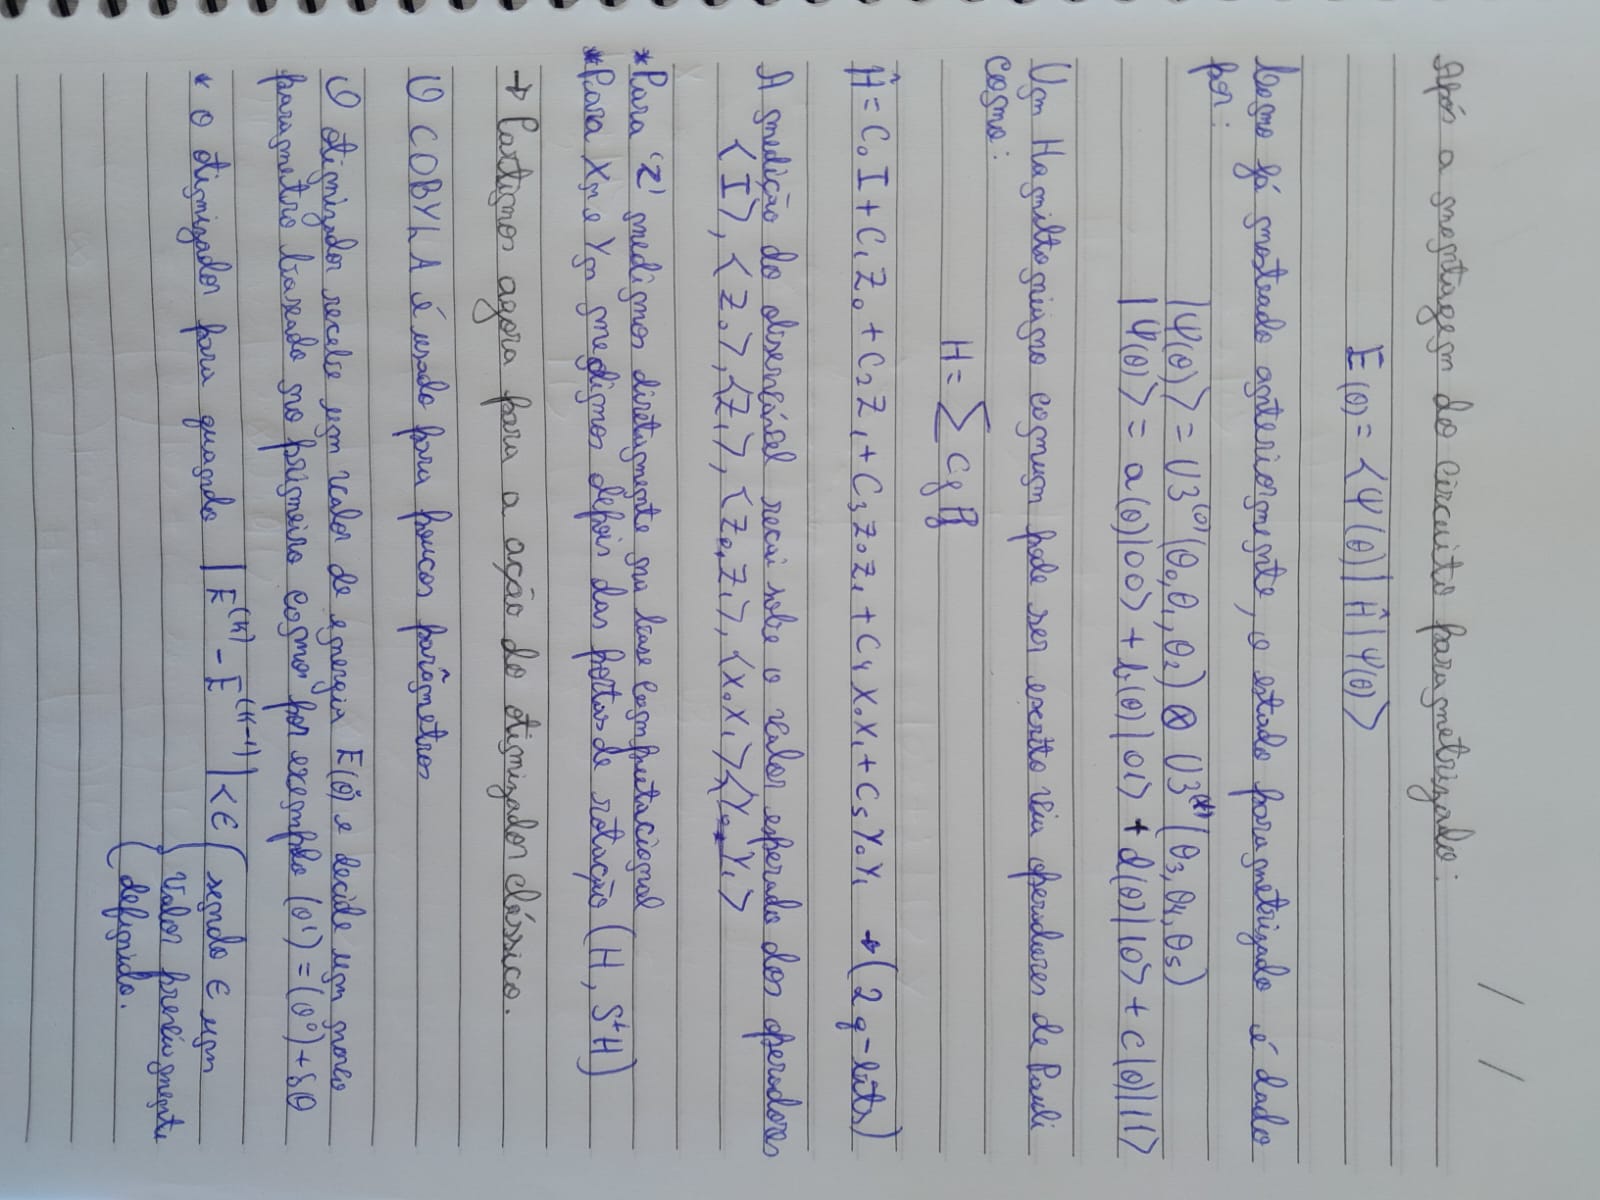 / /
Após a montagem do circuito parametrizado:
E(θ) = ⟨Ψ(θ)| Ĥ |Ψ(θ)⟩
Como já mostrado anteriormente, o estado parametrizado é dado
por:
|Ψ(θ)⟩ = U3⁽⁰⁾(θ₀,θ₁,θ₂) ⊗ U3⁽¹⁾(θ₃,θ₄,θ₅)
|Ψ(θ)⟩ = a(θ)|00⟩ + b(θ)|01⟩ + d(θ)|10⟩ + c(θ)|11⟩
Um Hamiltoniano comum pode ser escrito via operadores de Pauli
como:
H = ∑ Cⱼ Pⱼ
Ĥ = C₀I + C₁Z₀ + C₂Z₁ + C₃Z₀Z₁ + C₄X₀X₁ + C₅Y₀Y₁ → (2 q-bits)
A medição do observável recai sobre o valor esperado dos operadores
⟨I⟩, ⟨Z₀⟩, ⟨Z₁⟩, ⟨Z₀,Z₁⟩, ⟨X₀X₁⟩⟨Y₀,Y₁⟩
*Para 'Z' medimos diretamente na base computacional
*Para Xₙ e Yₙ medimos depois das portas de rotação (H, S⁺H)
→ Partimos agora para a ação do otimizador clássico.
O COBYLA é usado para poucos parâmetros
O otimizador recebe um valor de energia E(θ) e decide um novo
parametro baseado no primeiro como por exemplo (θ¹) = (θ⁰) + δθ
* o otimizador para quando |E⁽ᴷ⁾ - E⁽ᴷ⁻¹⁾| < ϵ { sendo ϵ um
valor previamente
definido.